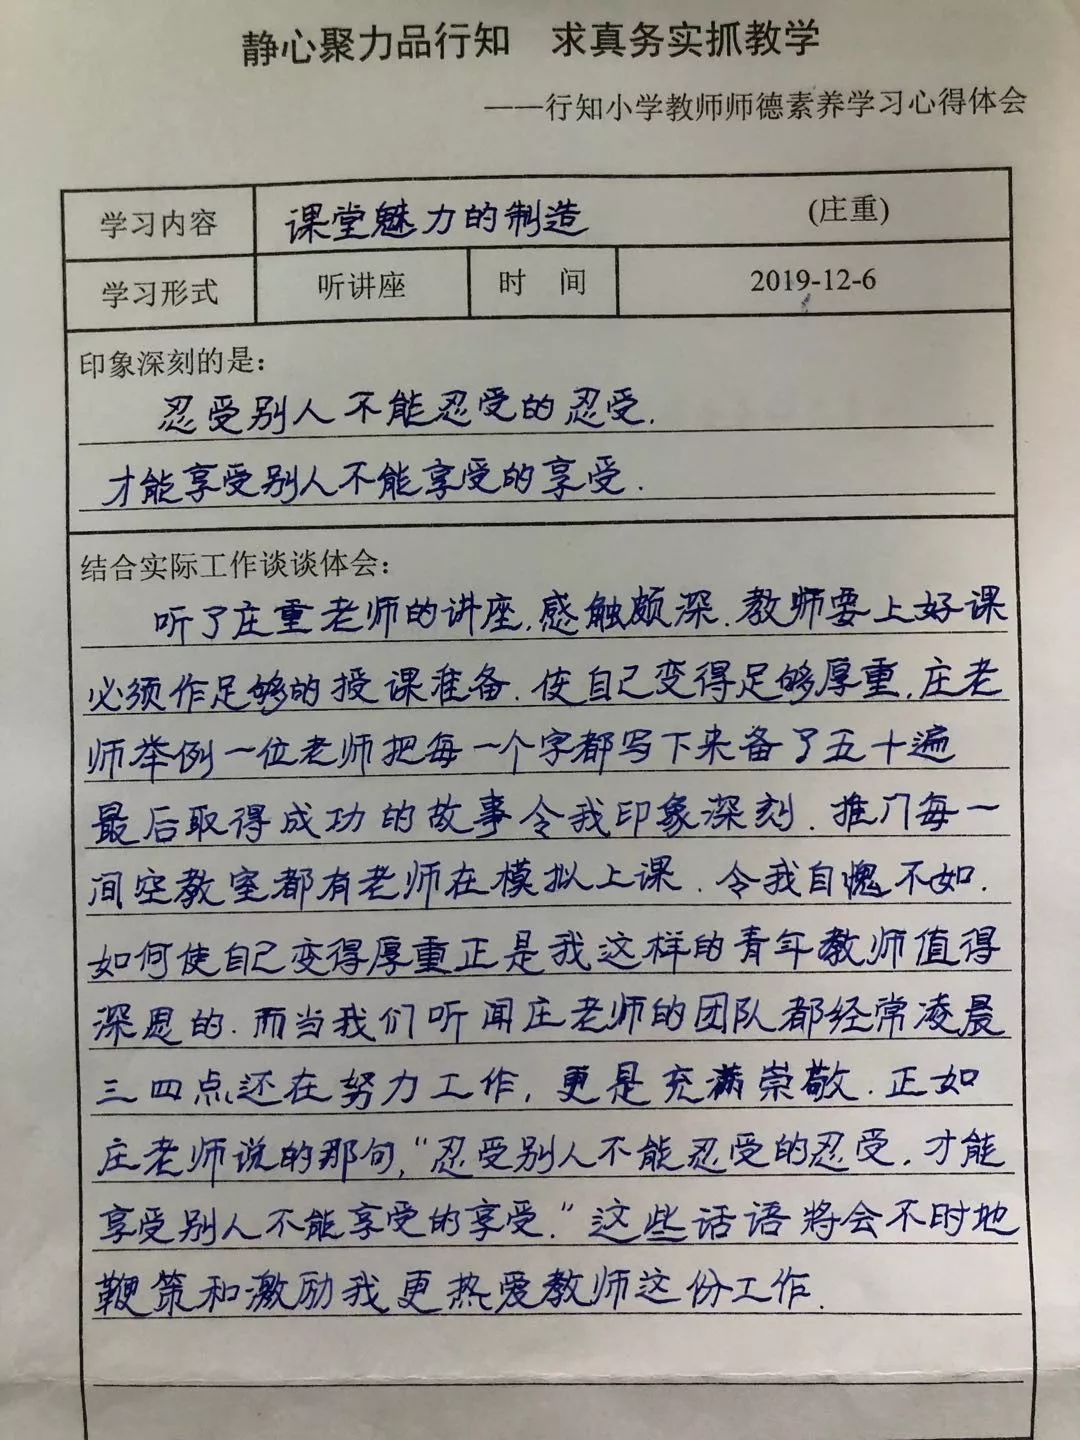 静心聚力品行知　求真务实抓教学
——行知小学教师师德素养学习心得体会
学习内容 课堂魅力的制造 (庄重)
学习形式 听讲座 时 间 2019-12-6
印象深刻的是：
忍受别人不能忍受的忍受.
才能享受别人不能享受的享受.
结合实际工作谈谈体会：
听了庄重老师的讲座,感触颇深.教师要上好课
必须作足够的授课准备.使自己变得足够厚重.庄老
师举例一位老师把每一个字都写下来备了五十遍
最后取得成功的故事令我印象深刻.推门每一
间空教室都有老师在模拟上课.令我自愧不如.
如何使自己变得厚重正是我这样的青年教师值得
深思的.而当我们听闻庄老师的团队都经常凌晨
三四点还在努力工作,更是充满崇敬.正如
庄老师说的那句,“忍受别人不能忍受的忍受.才能
享受别人不能享受的享受.”这些话语将会不时地
鞭策和激励我更热爱教师这份工作.